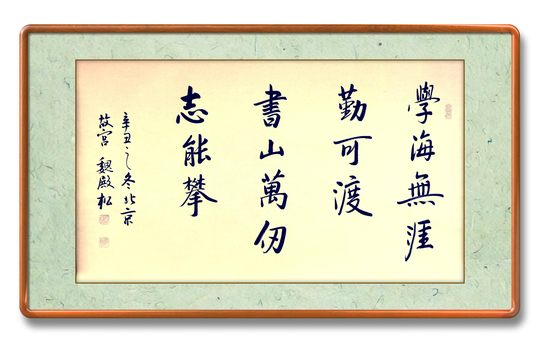 學海無涯
勤可渡
書山萬仞
志能攀
辛丑之冬北京
故宮 魏殿松